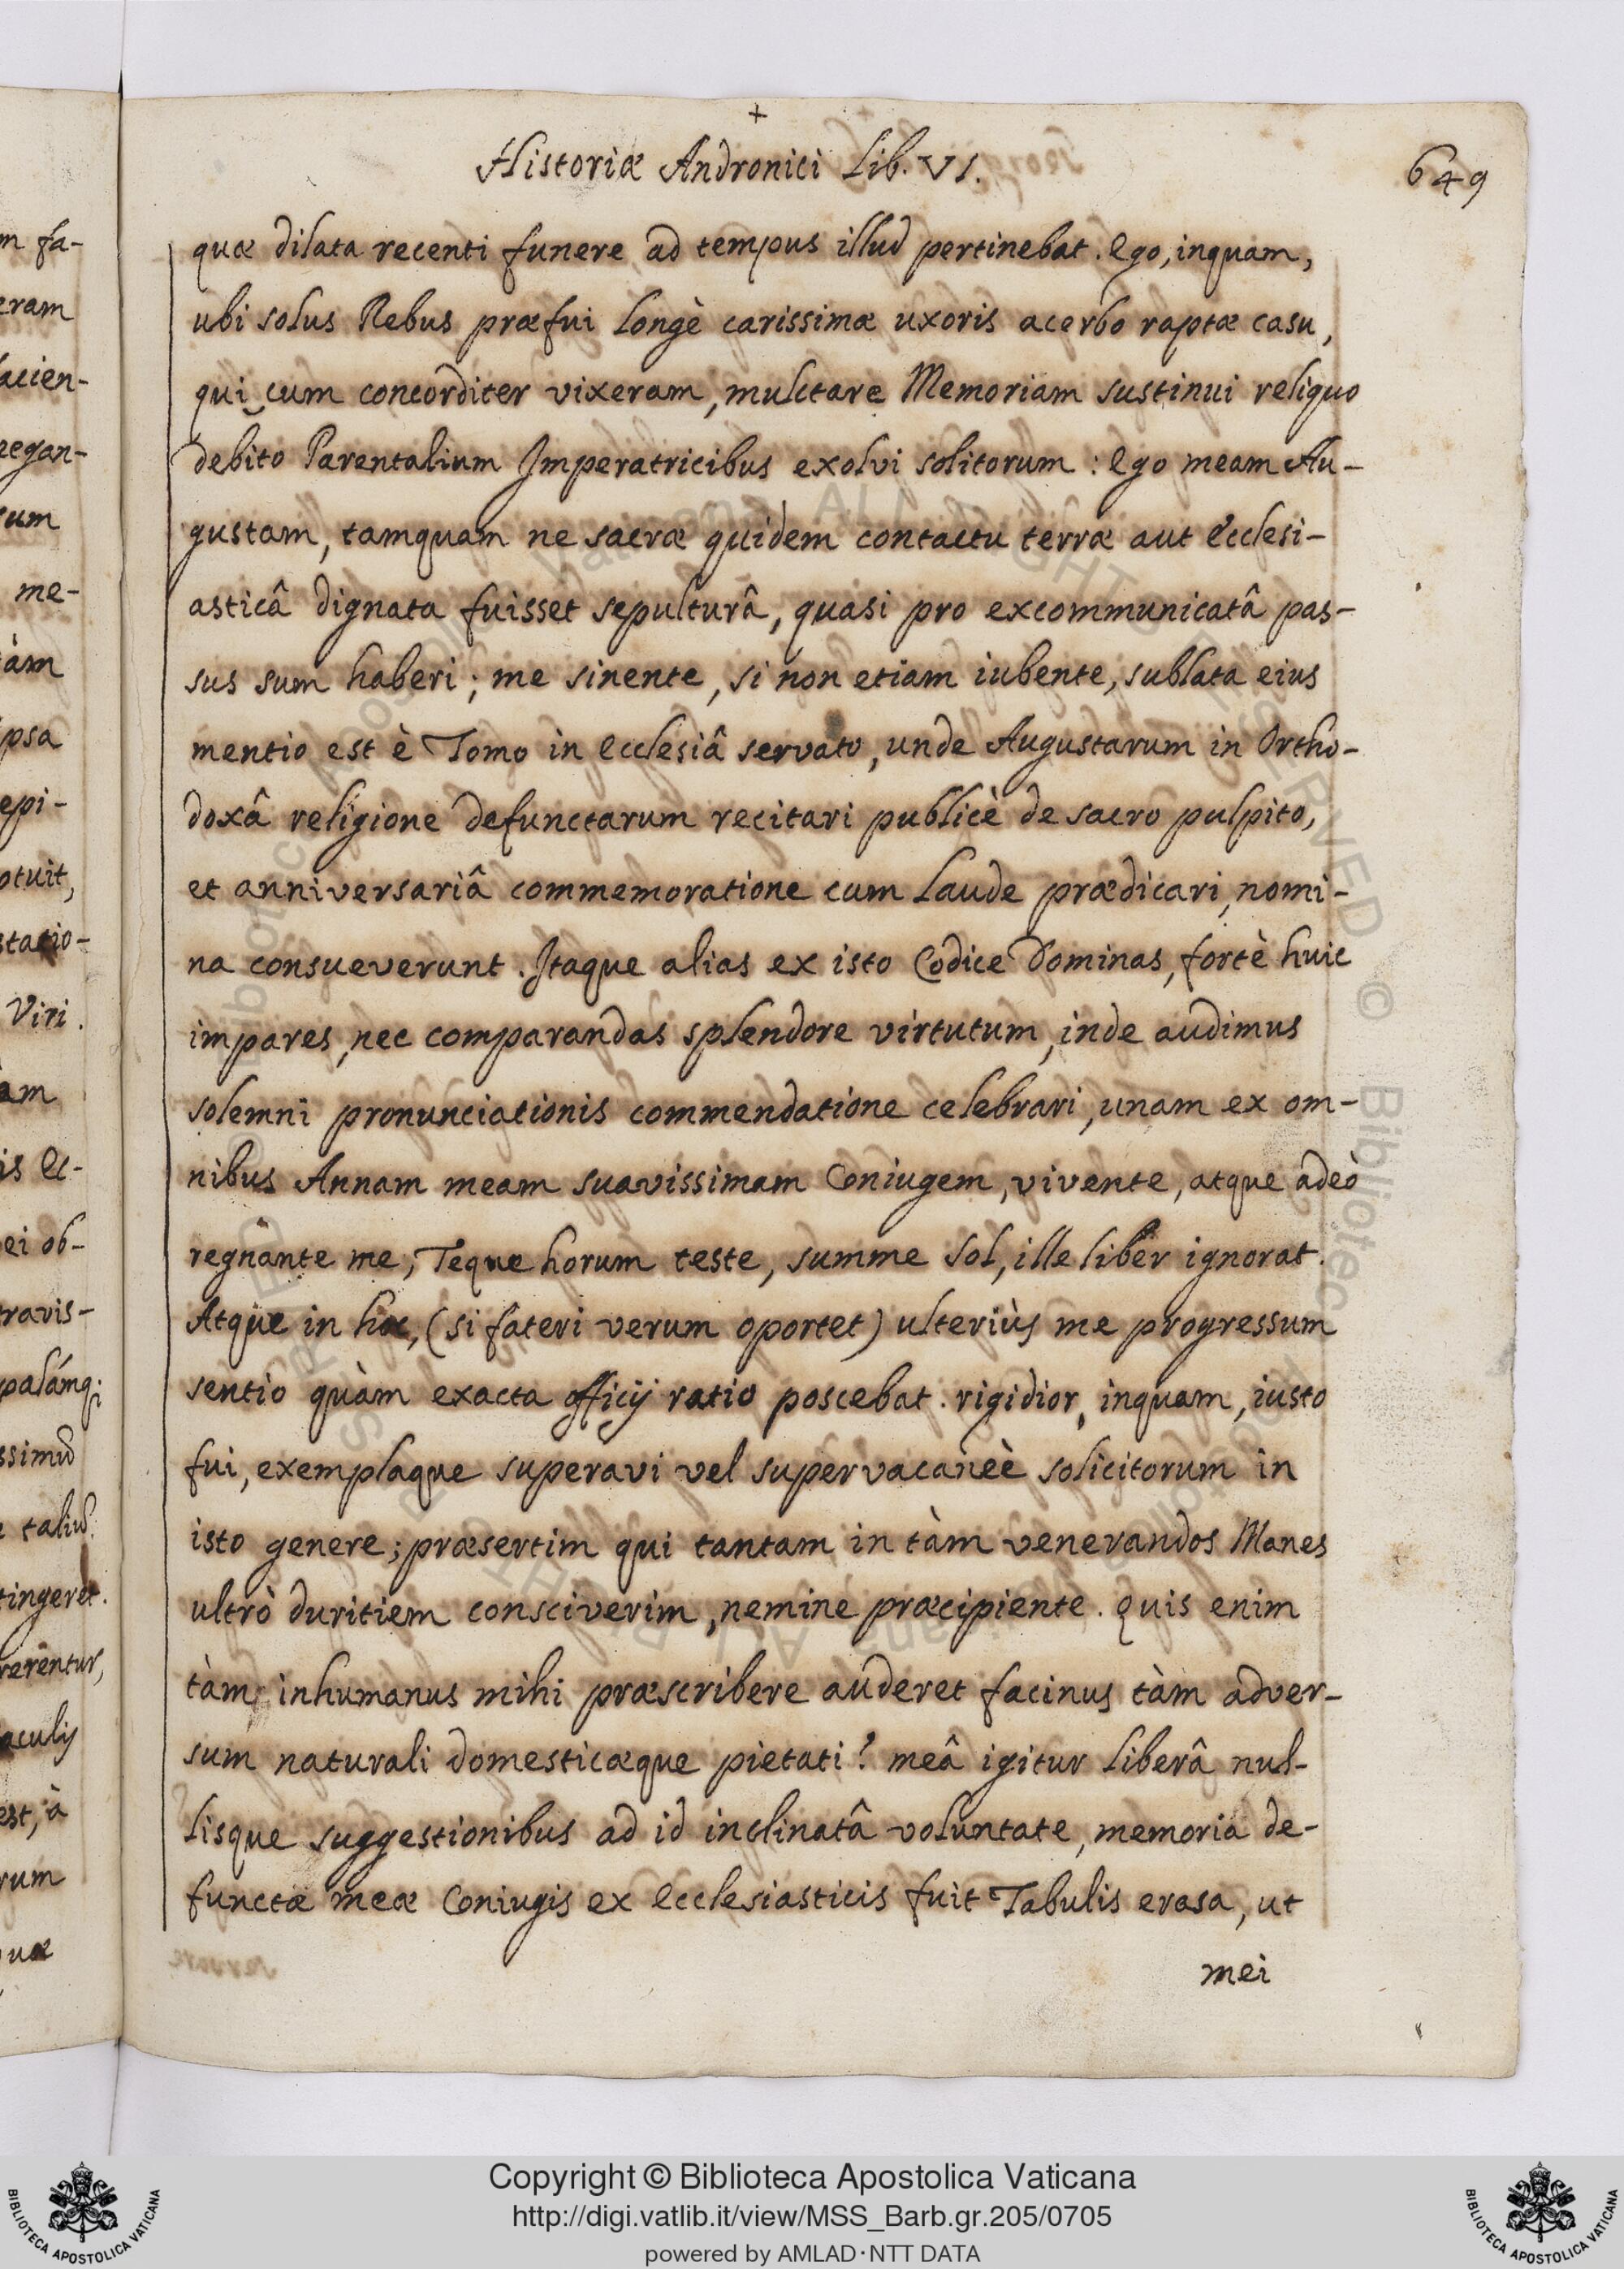 +
Historiæ Andronici Lib. VI.
649
quæ dilata recenti funere ad tempus illud pertinebat. Ego, inquam,
ubi solus Rebus præfui longè carissimæ uxoris acerbo raptæ casu,
qui cum concorditer vixeram, mulctare Memoriam sustinui reliquo
debito Parentalium Imperatricibus exolvi solitorum: Ego meam Au-
gustam, tamquam ne sacræ quidem contactu terræ aut Ecclesi-
asticâ dignata fuisset sepulturâ, quasi pro excommunicatâ pas-
sus sum haberi; me sinente, si non etiam iubente, sublata eius
mentio est è Tomo in Ecclesiâ servato, unde Augustarum in Ortho-
doxâ religione defunctarum recitari publicè de sacro pulpito,
et anniversariâ commemoratione cum laude prædicari, nomi-
na consueverunt. Itaque alias ex isto Codice Dominas, fortè huic
impares, nec comparandas splendore virtutum, inde audimus
solemni pronunciationis commendatione celebrari, unam ex om-
nibus Annam meam suavissimam Coniugem, vivente, atque adeò
regnante me, Teque horum teste, summe Sol, ille liber ignorat.
Atque in hoc, (si fateri verum oportet) ulteriùs me progressum
sentio quàm exacta officij ratio poscebat. rigidior, inquam, iusto
fui, exemplaque superavi vel supervacaneè solicitorum in
isto genere; præsertim qui tantam in tàm venerandos Manes
ultrò duritiem consciverim, nemine præcipiente. Quis enim
tàm inhumanus mihi præscribere auderet facinus tàm adver-
sum naturali domesticæque pietati? meâ igitur liberâ nul-
lisque suggestionibus ad id inclinatâ voluntate, memoria de-
functæ meæ Coniugis ex Ecclesiasticis fuit Tabulis erasa, ut
mei
m fa-
eram
acien-
negan-
sum
me-
àm
psa
epi-
otuit,
statio-
Viri.
am
is Ec-
ei ob-
ravis-
palámq;
tingeret.
rerentur,
est, à
rum
uæ
Copyright © Biblioteca Apostolica Vaticana
http://digi.vatlib.it/view/MSS_Barb.gr.205/0705
powered by AMLAD·NTT DATA
BIBLIOTECA APOSTOLICA VATICANA
BIBLIOTECA APOSTOLICA VATICANA